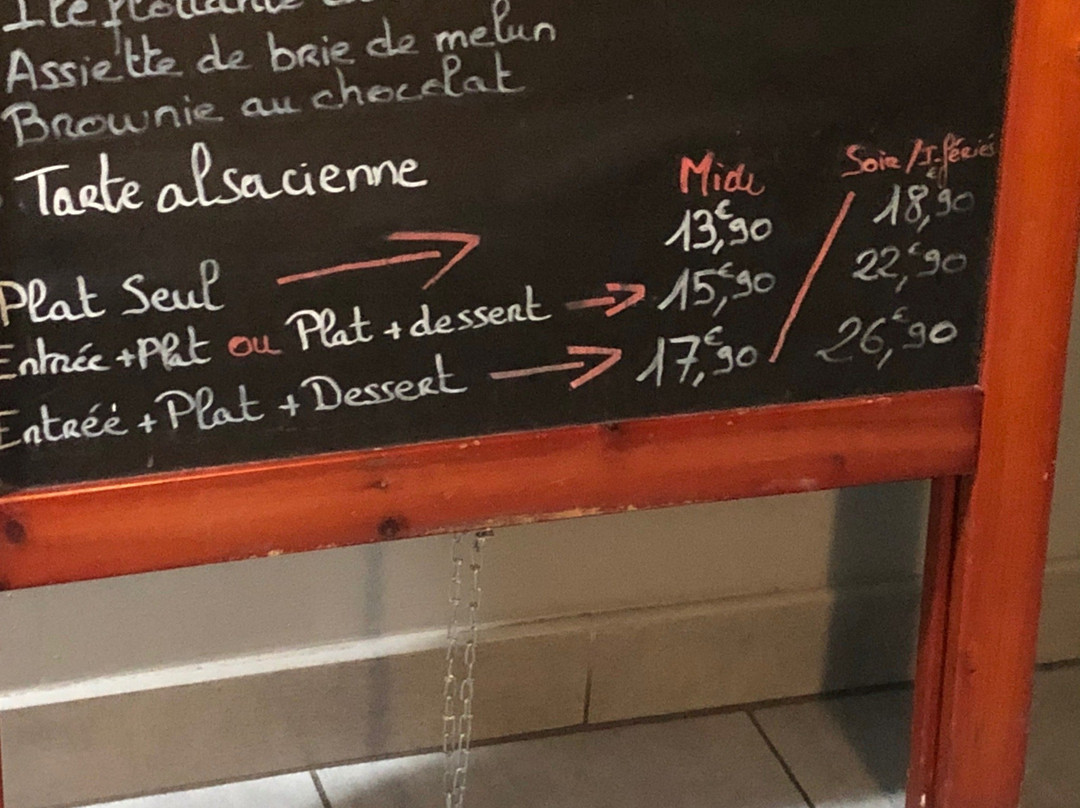 Ile flottante
Assiette de brie de melun
Brownie au chocolat
Tarte alsacienne
Midi Soir / J. fériés
Plat Seul 13,€90 / 18,€90
Entrée + Plat ou Plat + dessert 15,€90 22,€90
Entréé + Plat + Dessert 17,€90 26,€90